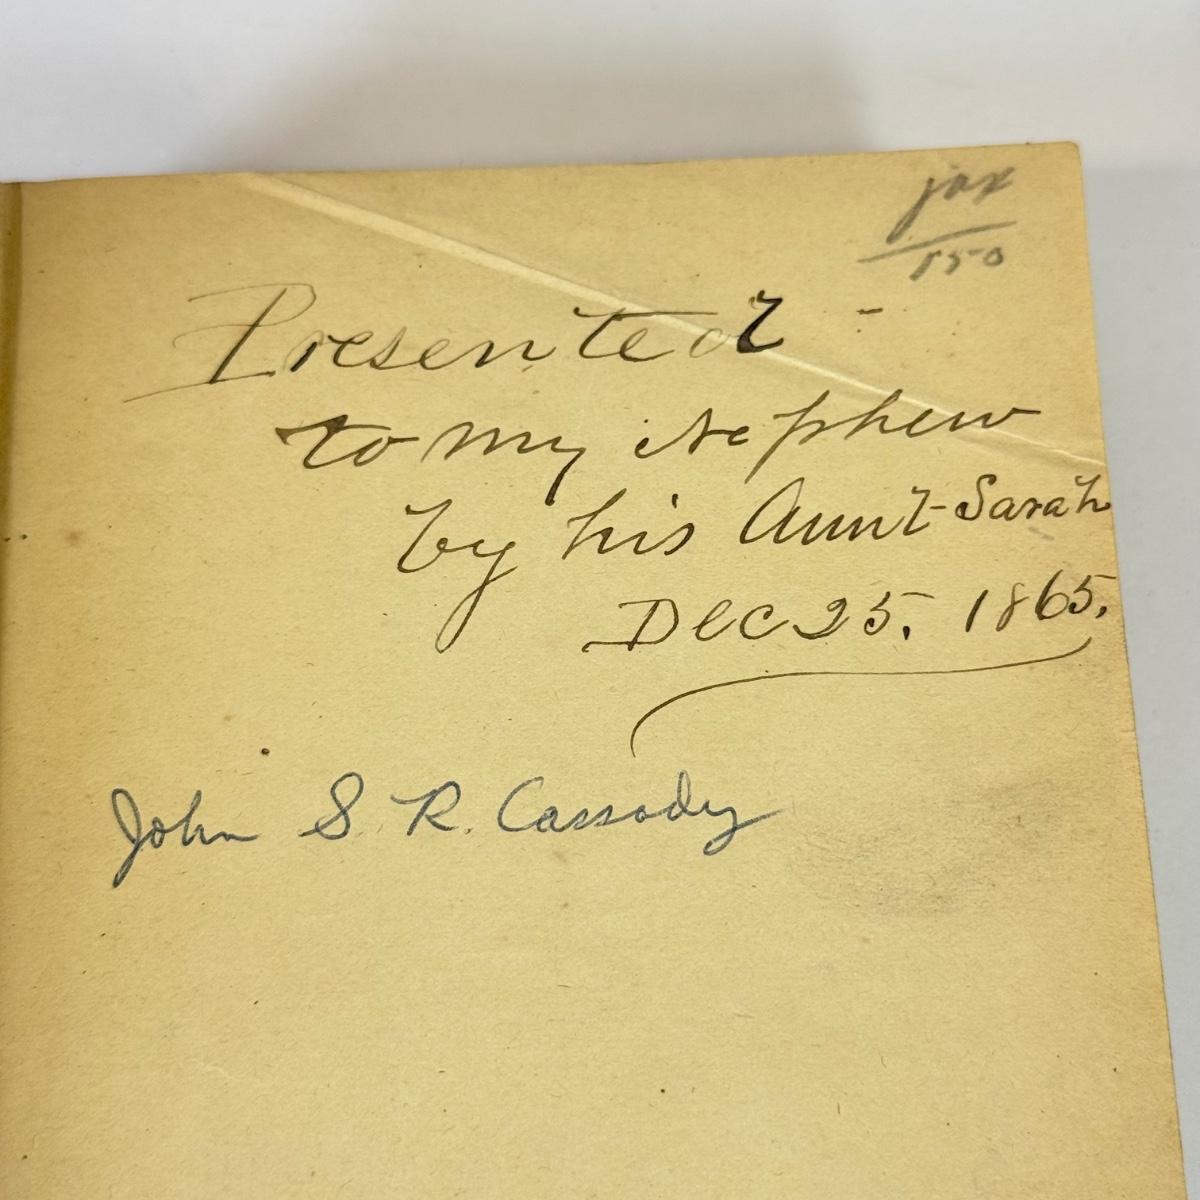 150
Presented -
to my Nephew
by his Aunt Sarah
Dec 25. 1865.
John S. R. Cassody